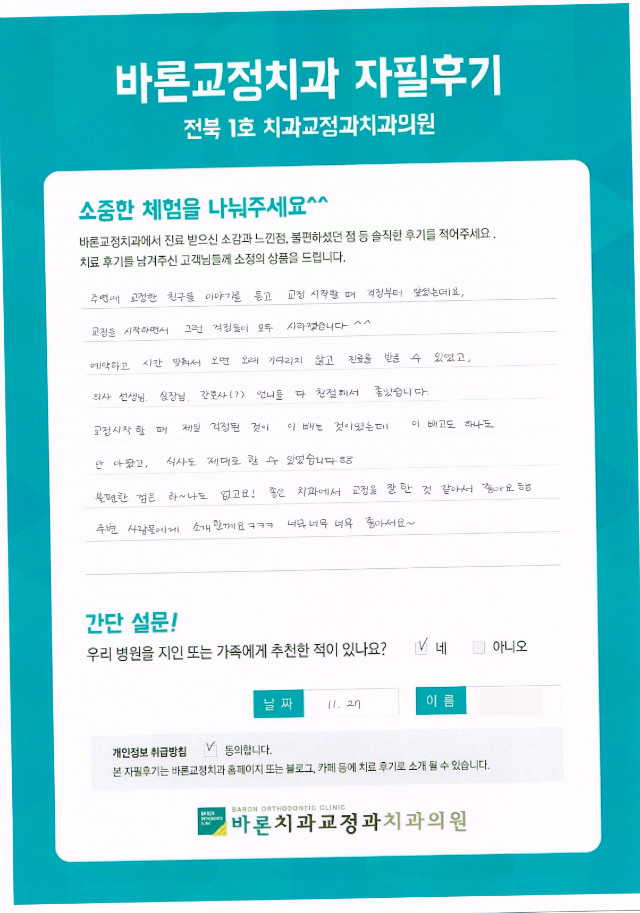 바론교정치과 자필후기
전북 1호 치과교정과치과의원
소중한 체험을 나눠주세요^^
바론교정치과에서 진료 받으신 소감과 느낀점, 불편하셨던 점 등 솔직한 후기를 적어주세요.
치료 후기를 남겨주신 고객님들께 소정의 상품을 드립니다.
주변에 교정한 친구들 이야기를 듣고 교정 시작할 때 걱정부터 앞섰는데요,
교정을 시작하면서 그런 걱정들이 모두 사라졌습니다 ^^
예약하고 시간 맞춰서 오면 오래 기다리지 않고 진료를 받을 수 있었고,
의사 선생님, 실장님, 간호사(?) 언니들 다 친절해서 좋았습니다.
교정시작 할 때 제일 걱정된 것이 이 빼는 것이었는데 이 빼고도 하나도
안 아팠고, 식사도 제대로 할 수 있었습니다ㅎㅎ
불편한 점은 하~나도 없고요! 좋은 치과에서 교정을 잘 한 것 같아서 좋아요ㅎㅎ
주변 사람들에게 소개할께요ㅋㅋㅋ 너무너무 너무 좋아서요~
간단 설문!
우리 병원을 지인 또는 가족에게 추천한 적이 있나요? ✓ 네 아니오
날 짜 11. 27 이 름
개인정보 취급방침 ✓ 동의합니다.
본 자필후기는 바론교정치과 홈페이지 또는 블로그, 카페 등에 치료 후기로 소개 될 수 있습니다.
BARON ORTHODONTIC CLINIC
바론치과교정과치과의원